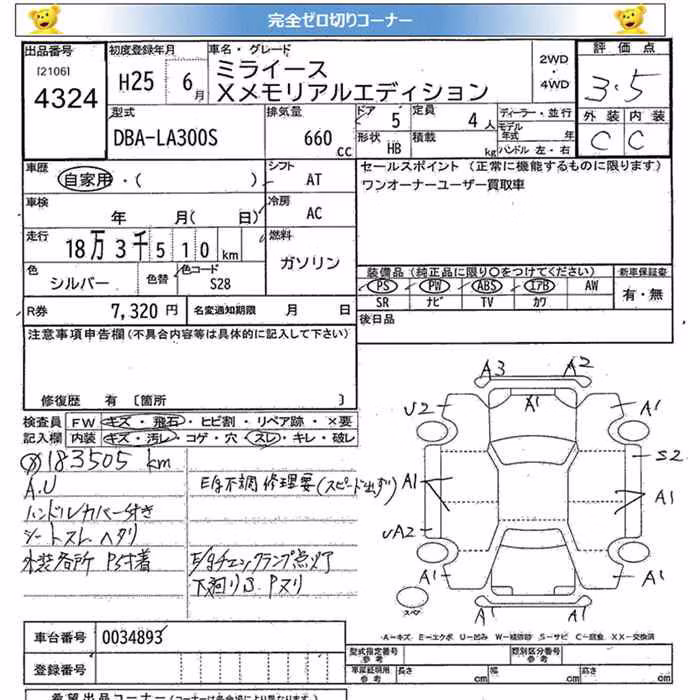 完全ゼロ切りコーナー
出品番号 初度登録年月 車名・グレード 2WD・4WD 評価点
[2106] 4324 H25 6月 ミライース 3.5
Xメモリアルエディション
型式 排気量 ドア 定員 ディーラー・並行 外装 内装
DBA-LA300S 660cc 5 4人 モデル年式 年 C C
形状 HB 積載 kg ハンドル 左・右
車歴 シフト セールスポイント (正常に機能するものに限ります)
自家用・( ) AT ワンオーナーユーザー買取車
車検 冷房
年 月( 日) AC
走行 燃料
18万3千510km ガソリン
色 シルバー 色替 色コード S28
装備品 (純正品に限り○をつけてください) 新車保証書
PS PW ABS エアB AW 有・無
SR ナビ TV カワ
R券 7,320円 名変通知期限 月 日 後日品
注意事項申告欄(不具合内容等は具体的に記入して下さい)
修復歴 有 〔箇所 〕
検査員 FW キズ・飛石・ヒビ割・リペア跡・×要
記入欄 内装 キズ・汚レ・コゲ・穴・スレ・キレ・破レ
183505 km
A.U
ハンドルカバー付き
シートスレ ヘタリ
外装各所
E/g不調 修理要(スピード出ず)
E/gチェックランプ点灯
下廻りS.Pヌリ
A3 A2
U2 A1 A1
S2
A1 A1
UA2
A1 A1
A1 A1
スペア
A−キズ E−エクボ U−凹み W−補修跡 S−サビ C−腐食 XX−交換済
車台番号 0034893
型式指定番号 参考 類別区分番号 参考
登録番号
車庫証明用 参考 長さ cm 幅 cm 高さ cm
希望出品コーナー